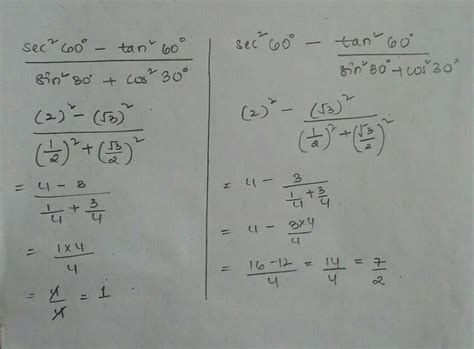 sec²60° - tan²60° / sin²30° + cos²30°
(2)² - (√3)² / (1/2)² + (√3/2)²
= 4 - 3 / 1/4 + 3/4
= 1×4 / 4
= 4/4 = 1
sec²60° - tan²60° / sin²30° + cos²30°
(2)² - (√3)² / (1/2)² + (√3/2)²
= 4 - 3 / 1/4 + 3/4
= 4 - 3×4 / 4
= 16-12 / 4 = 14/4 = 7/2